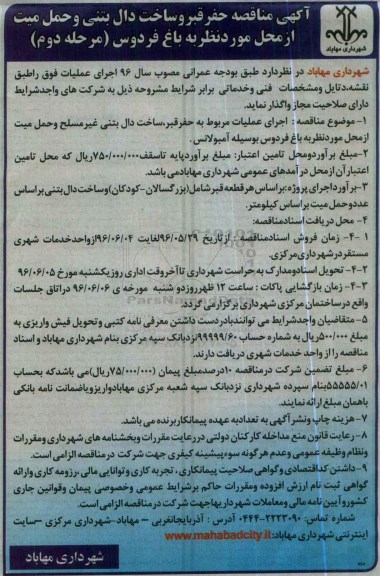 آگهی مناقصه حفرقبروساخت دال بتنی وحمل میت
ازمحل موردنظربه باغ فردوس (مرحله دوم)
شهرداری مهاباد
شهرداری مهاباد در نظردارد طبق بودجه عمرانی مصوب سال ۹۶ اجرای عملیات فوق راطبق
نقشه،دتایل ومشخصات فنی وخدماتی برابر شرایط مشروحه ذیل به شرکت های واجدشرایط
دارای صلاحیت مجاز واگذار نماید.
۱-موضوع مناقصه : اجرای عملیات مربوط به حفرقبر،ساخت دال بتنی غیرمسلح وحمل میت
ازمحل موردنظربه باغ فردوس بوسیله آمبولانس.
۲-مبلغ برآوردومحل تامین اعتبار: مبلغ برآوردپایه تاسقف۷۵۰/۰۰۰/۰۰۰ریال که محل تامین
اعتبارآن ازمحل درآمدهای عمومی شهرداری مهابادمی باشد.
۳-برآورداجرای پروژه:براساس هرقطعه قبرشامل(بزرگسالان-کودکان)وساخت دال بتنی براساس
عددوحمل میت براساس کیلومتر.
۴- محل دریافت اسنادمناقصه:
۱-۴- زمان فروش اسنادمناقصه : ازتاریخ ۹۶/۰۵/۲۹لغایت ۹۶/۰۶/۰۴ازواحدخدمات شهری
مستقردرشهرداری مرکزی.
۲-۴- تحویل اسنادومدارک به حراست شهرداری تاآخروقت اداری روزیکشنبه مورخ ۹۶/۰۶/۰۵
۳-۴- زمان بازگشایی پاکات : ساعت ۱۲ ظهرروزدو شنبه مورخه ی ۹۶/۰۶/۰۶ دراتاق جلسات
واقع درساختمان مرکزی شهرداری برگزارمی گردد.
۵-متقاضیان واجدشرایط می توانندبادردست داشتن معرفی نامه کتبی وتحویل فیش واریزی به
مبلغ ۵۰۰/۰۰۰ریال به شماره حساب ۹۹۹۹۹/۶۰نزدبانک سپه مرکزی بنام شهرداری مهاباد و اسناد
مناقصه را از واحد خدمات شهری دریافت دارند.
۶-مبلغ تضمین شرکت درمناقصه ۱۰درصدمبلغ پیمان (۷۵/۰۰۰/۰۰۰ریال)می باشدکه بحساب
۵۵۵۵۵/۰۱بنام سپرده شهرداری نزدبانک سپه شعبه مرکزی مهابادواریزویاضمانت نامه بانکی
باهمان مبلغ ارائه نمایند.
۷-هزینه چاپ ونشر آگهی به تعدادبه عهده پیمانکاربرنده می باشد.
۸-رعایت قانون منع مداخله کارکنان دولتی دررعایت مقررات وبخشنامه های شهرداری ومقررات
ونظام وظیفه عمومی وعدم هرگونه سوءپیشینه کیفری جهت شرکت درمناقصه الزامی است.
۹-داشتن کداقتصادی و گواهی صلاحیت پیمانکاری ، تجربه کاری و توانایی مالی ،رزومه کاری وارائه
گواهی ثبت نام ارزش افزوده ومقررات حاکم برشرایط عمومی وخصوصی پیمان وقوانین جاری
کشوروآیین نامه مالی ومعاملات شهرداریهاجهت شرکت درمناقصه الزامی است.
شماره تماس: ۲۲۲۳۰۹۰-۰۴۴۴ آدرس : آذربایجانغربی - مهاباد-شهرداری مرکزی -سایت
اینترنتی شهرداری مهاباد: www.mahabadcity.ir
شهرداری مهاباد